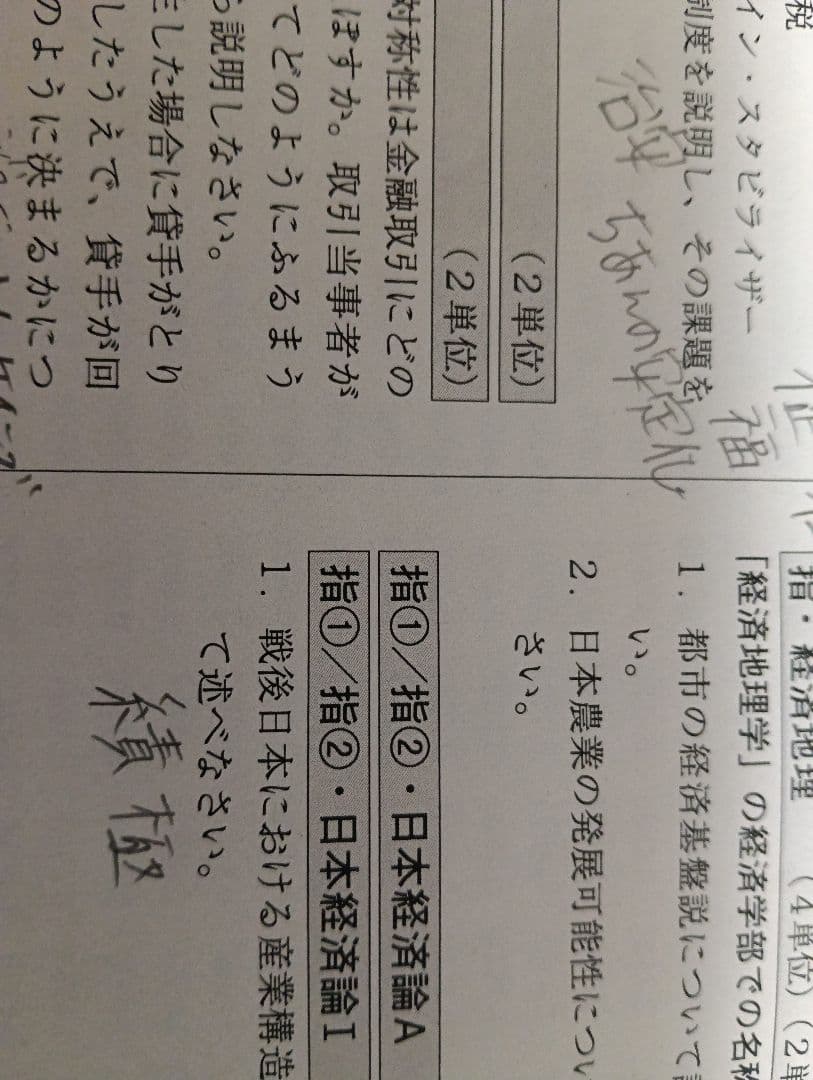 税
イン・スタビライザー
福
制度を説明し、その課題を
ちあんの安定化
（２単位）
（２単位）
対称性は金融取引にどの
ぼすか。取引当事者が
てどのようにふるまう
説明しなさい。
した場合に貸手がとり
したうえで、貸手が回
のように決まるかにつ
指・経済地理　（４単位）（２単
「経済地理学」の経済学部での名称
１．都市の経済基盤説について
い。
２．日本農業の発展可能性につい
さい。
指①／指②・日本経済論Ａ
指①／指②・日本経済論Ⅰ
１．戦後日本における産業構造
て述べなさい。
績極